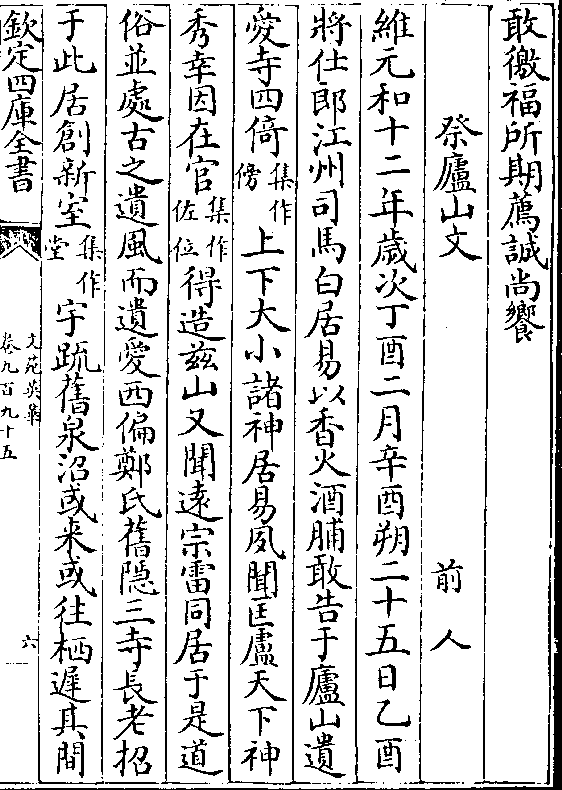 敢徼福所期薦誠尚饗
祭廬山文　前人
維元和十二年歲次丁酉二月辛酉朔二十五日乙酉
將仕郎江州司馬白居易以香火酒脯敢告于廬山遺
愛寺四倚集作傍上下大小諸神居易夙聞匡廬天下神
秀幸因在官集作佐位得造兹山又聞遠宗雷同居于是道
俗並處古之遺風而遺愛西偏鄭氏舊隱三寺長老招
于此居創新室集作堂宇䟽舊泉沼或来或往栖遲其間
欽定四庫全書
文苑英華
卷九百九十五
六